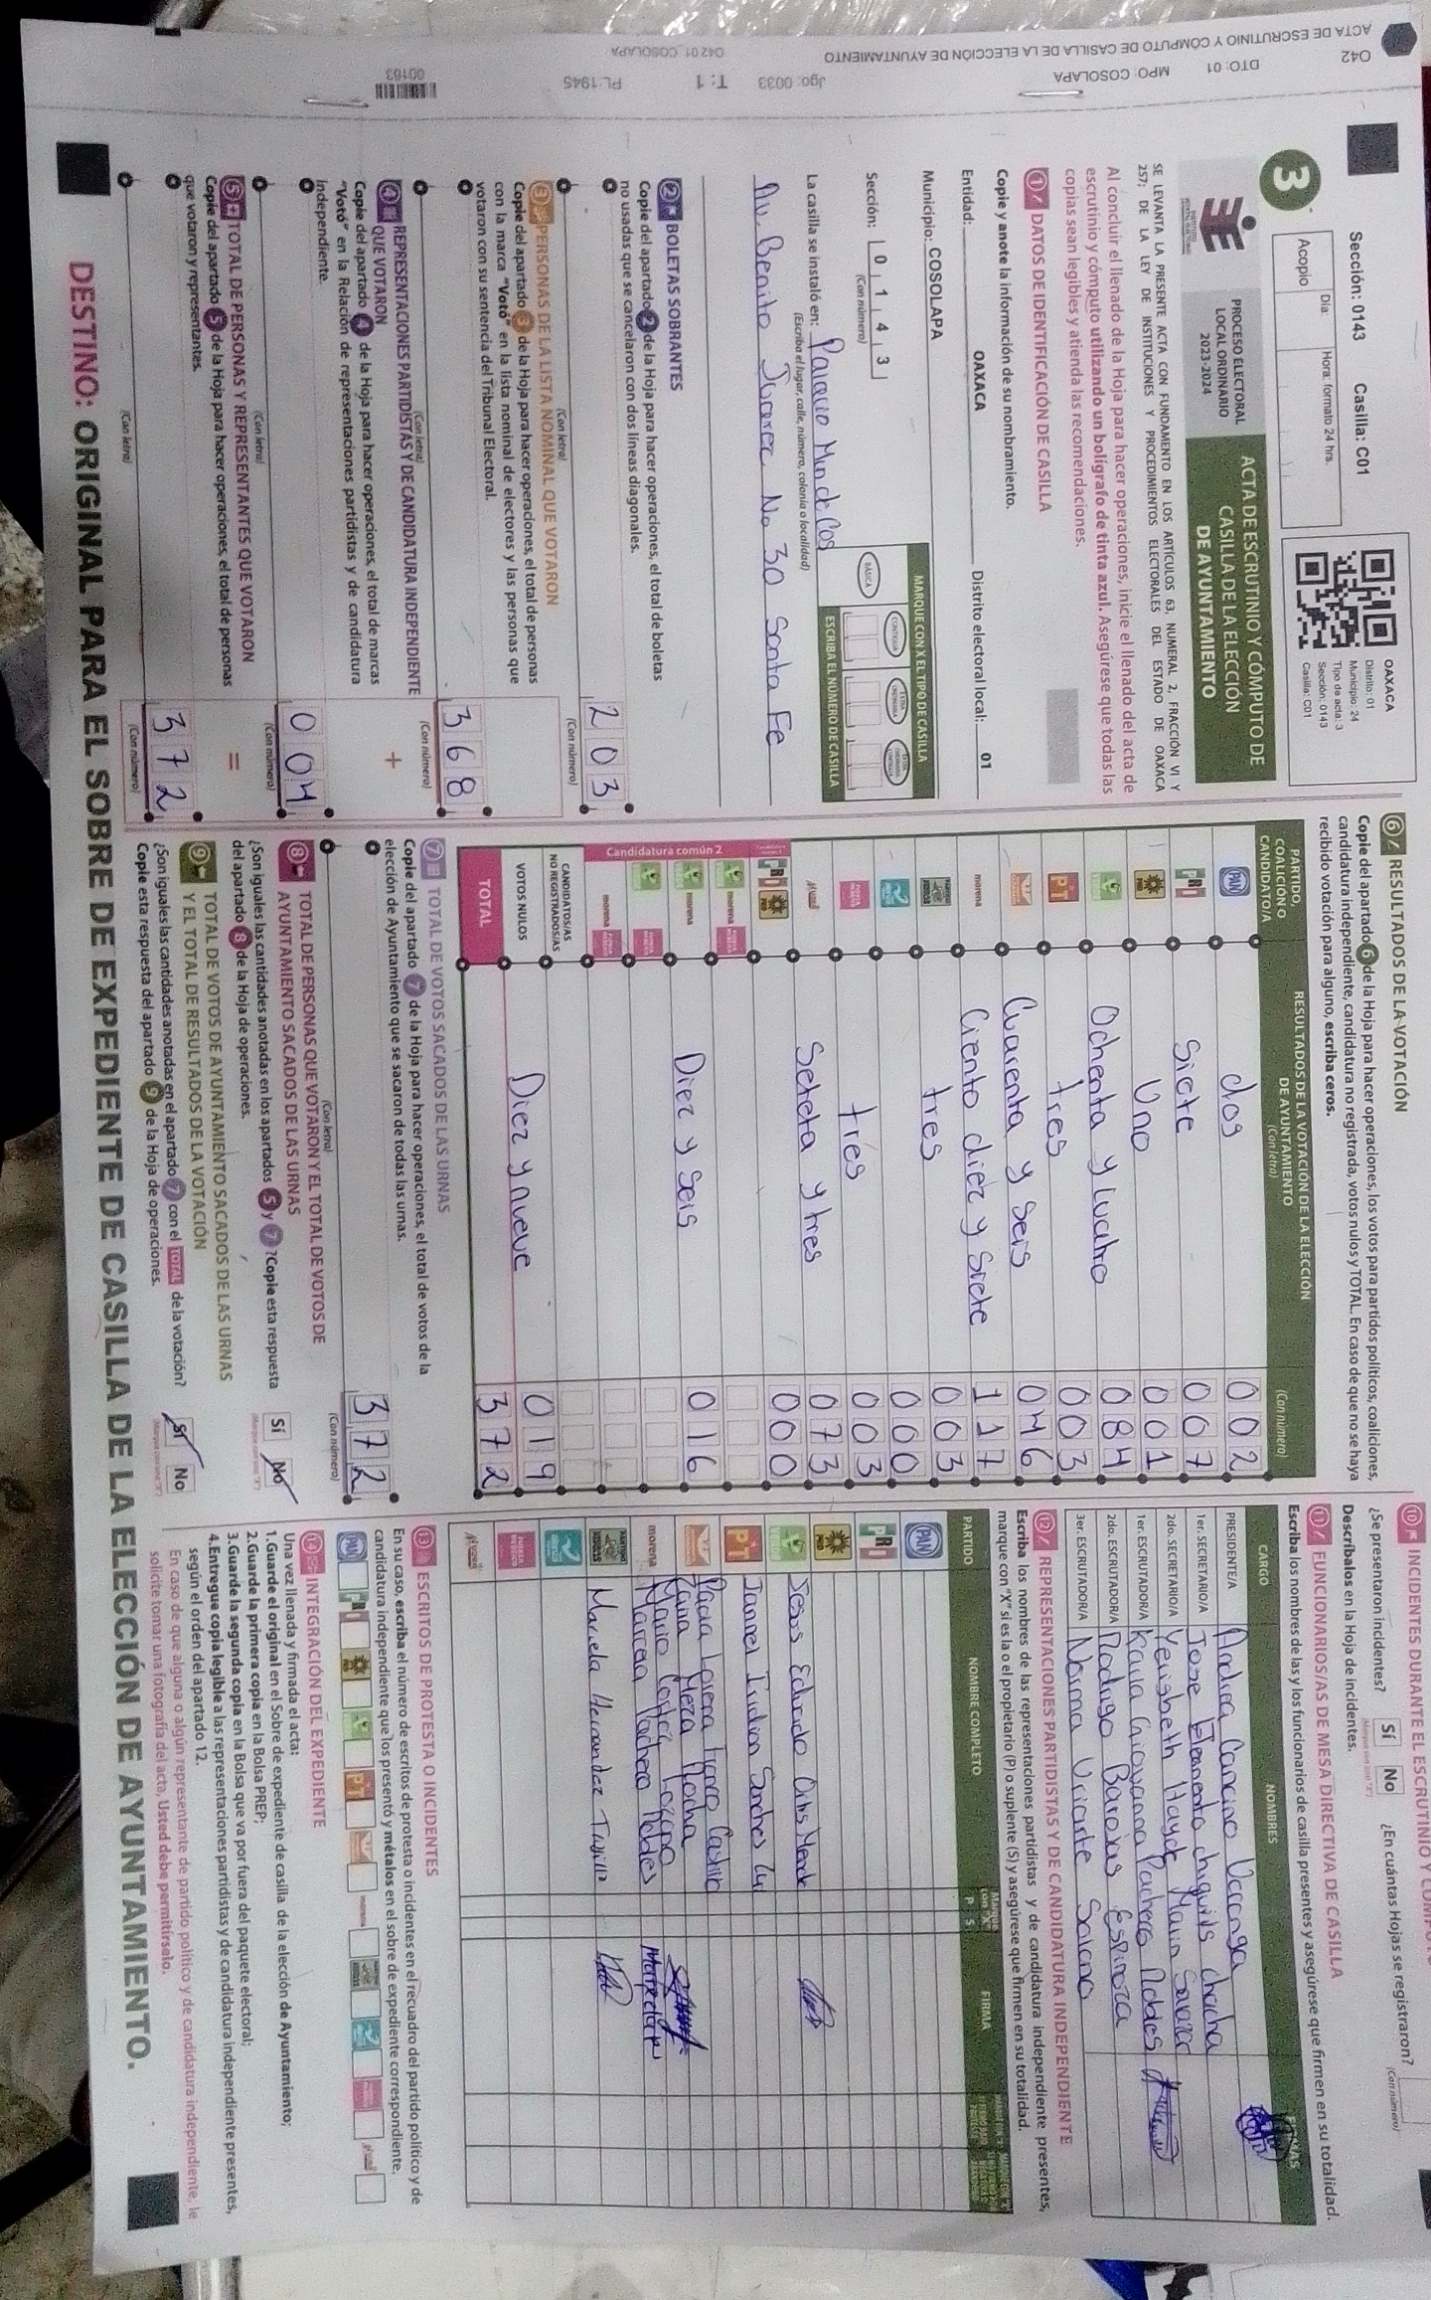 ACTA DE ESCRUTINIO Y CÓMPUTO DE CASILLA DE LA ELECCIÓN DE AYUNTAMIENTO
042 DTO: 01 MPO: COSOLAPA Jgo: 0033 T: 1 PL: 1945
042 01 COSOLAPA
00163
Sección: 0143 Casilla: C01
OAXACA
Distrito: 01
Municipio: 24
Tipo de acta: 3
Sección: 0143
Casilla: C01
3
Acopio
Día:
Hora: formato 24 hrs.
PROCESO ELECTORAL
LOCAL ORDINARIO
2023-2024
ACTA DE ESCRUTINIO Y CÓMPUTO DE
CASILLA DE LA ELECCIÓN
DE AYUNTAMIENTO
SE LEVANTA LA PRESENTE ACTA CON FUNDAMENTO EN LOS ARTÍCULOS 63, NUMERAL 2, FRACCIÓN VI Y
257; DE LA LEY DE INSTITUCIONES Y PROCEDIMIENTOS ELECTORALES DEL ESTADO DE OAXACA
Al concluir el llenado de la Hoja para hacer operaciones, inicie el llenado del acta de
escrutinio y cómputo utilizando un bolígrafo de tinta azul. Asegúrese que todas las
copias sean legibles y atienda las recomendaciones.
1 DATOS DE IDENTIFICACIÓN DE CASILLA
Copie y anote la información de su nombramiento.
Entidad: OAXACA Distrito electoral local: 01
Municipio: COSOLAPA
Sección: 0 1 4 3
(Con número)
MARQUE CON X EL TIPO DE CASILLA
BÁSICA
ESCRIBA EL NÚMERO DE CASILLA
La casilla se instaló en:
(Escriba el lugar, calle, número, colonia o localidad)
Av. Benito Juarez No 30 Santa Fe
2 BOLETAS SOBRANTES
Copie del apartado 2 de la Hoja para hacer operaciones, el total de boletas
no usadas que se cancelaron con dos líneas diagonales.
203
(Con letra) (Con número)
3 PERSONAS DE LA LISTA NOMINAL QUE VOTARON
Copie del apartado 3 de la Hoja para hacer operaciones, el total de personas
con la marca "Votó" en la lista nominal de electores y las personas que
votaron con su sentencia del Tribunal Electoral.
368
(Con letra) (Con número)
4 REPRESENTACIONES PARTIDISTAS Y DE CANDIDATURA INDEPENDIENTE
QUE VOTARON
+
Copie del apartado 4 de la Hoja para hacer operaciones, el total de marcas
"Votó" en la Relación de representaciones partidistas y de candidatura
independiente.
004
(Con letra) (Con número)
5 TOTAL DE PERSONAS Y REPRESENTANTES QUE VOTARON
=
Copie del apartado 5 de la Hoja para hacer operaciones, el total de personas
que votaron y representantes.
372
(Con letra) (Con número)
6 RESULTADOS DE LA VOTACIÓN
Copie del apartado 6 de la Hoja para hacer operaciones, los votos para partidos políticos, coaliciones,
candidatura independiente, candidatura no registrada, votos nulos y TOTAL. En caso de que no se haya
recibido votación para alguno, escriba ceros.
PARTIDO, COALICIÓN O CANDIDATO/A
RESULTADOS DE LA VOTACIÓN DE LA ELECCIÓN DE AYUNTAMIENTO
(Con letra) (Con número)
PAN dos 002
PRI Siete 007
PRD Uno 001
Ochenta y cuatro 084
PT tres 003
Cuarenta y seis 046
morena Ciento diez y siete 117
tres 003
000
tres 003
Seteta y tres 073
PRI PRD 000
Candidatura común 2
morena
morena Diez y seis 016
morena
CANDIDATOS/AS NO REGISTRADOS/AS
VOTOS NULOS Diez y nueve 019
TOTAL 372
7 TOTAL DE VOTOS SACADOS DE LAS URNAS
Copie del apartado 7 de la Hoja para hacer operaciones, el total de votos de la
elección de Ayuntamiento que se sacaron de todas las urnas.
372
(Con letra) (Con número)
8 TOTAL DE PERSONAS QUE VOTARON Y EL TOTAL DE VOTOS DE
AYUNTAMIENTO SACADOS DE LAS URNAS
¿Son iguales las cantidades anotadas en los apartados 5 y 7? Copie esta respuesta
del apartado 8 de la Hoja de operaciones.
Sí No
9 TOTAL DE VOTOS DE AYUNTAMIENTO SACADOS DE LAS URNAS
Y EL TOTAL DE RESULTADOS DE LA VOTACIÓN
¿Son iguales las cantidades anotadas en el apartado 7 con el TOTAL de la votación?
Copie esta respuesta del apartado 9 de la Hoja de operaciones.
Sí No
10 INCIDENTES DURANTE EL ESCRUTINIO Y
¿Se presentaron incidentes? Sí No ¿En cuántas Hojas se registraron?
(Con número)
Descríbalos en la Hoja de incidentes.
11 FUNCIONARIOS/AS DE MESA DIRECTIVA DE CASILLA
Escriba los nombres de las y los funcionarios de casilla presentes y asegúrese que firmen en su totalidad.
CARGO NOMBRES
PRESIDENTE/A Andrea Cancino
1er. SECRETARIO/A Jose
2do. SECRETARIO/A
1er. ESCRUTADOR/A Pacheco
2do. ESCRUTADOR/A Rodrigo Barojas Espinoza
3er. ESCRUTADOR/A Norma Uriarte
12 REPRESENTACIONES PARTIDISTAS Y DE CANDIDATURA INDEPENDIENTE
Escriba los nombres de las representaciones partidistas y de candidatura independiente presentes,
marque con "X" si es la o el propietario (P) o suplente (S) y asegúrese que firmen en su totalidad.
PARTIDO NOMBRE COMPLETO P S FIRMA
PAN
PRI
PRD
Jesus Eduardo
PT
morena Pacheco
Mariela Hernandez
13 ESCRITOS DE PROTESTA O INCIDENTES
En su caso, escriba el número de escritos de protesta o incidentes en el recuadro del partido político y de
candidatura independiente que los presentó y métalos en el sobre de expediente correspondiente.
14 INTEGRACIÓN DEL EXPEDIENTE
Una vez llenada y firmada el acta:
1.Guarde el original en el Sobre de expediente de casilla de la elección de Ayuntamiento;
2.Guarde la primera copia en la Bolsa PREP;
3.Guarde la segunda copia en la Bolsa que va por fuera del paquete electoral;
4.Entregue copia legible a las representaciones partidistas y de candidatura independiente presentes,
según el orden del apartado 12.
En caso de que alguna o algún representante de partido político y de candidatura independiente, le
solicite tomar una fotografía del acta, Usted debe permitírselo.
DESTINO: ORIGINAL PARA EL SOBRE DE EXPEDIENTE DE CASILLA DE LA ELECCIÓN DE AYUNTAMIENTO.